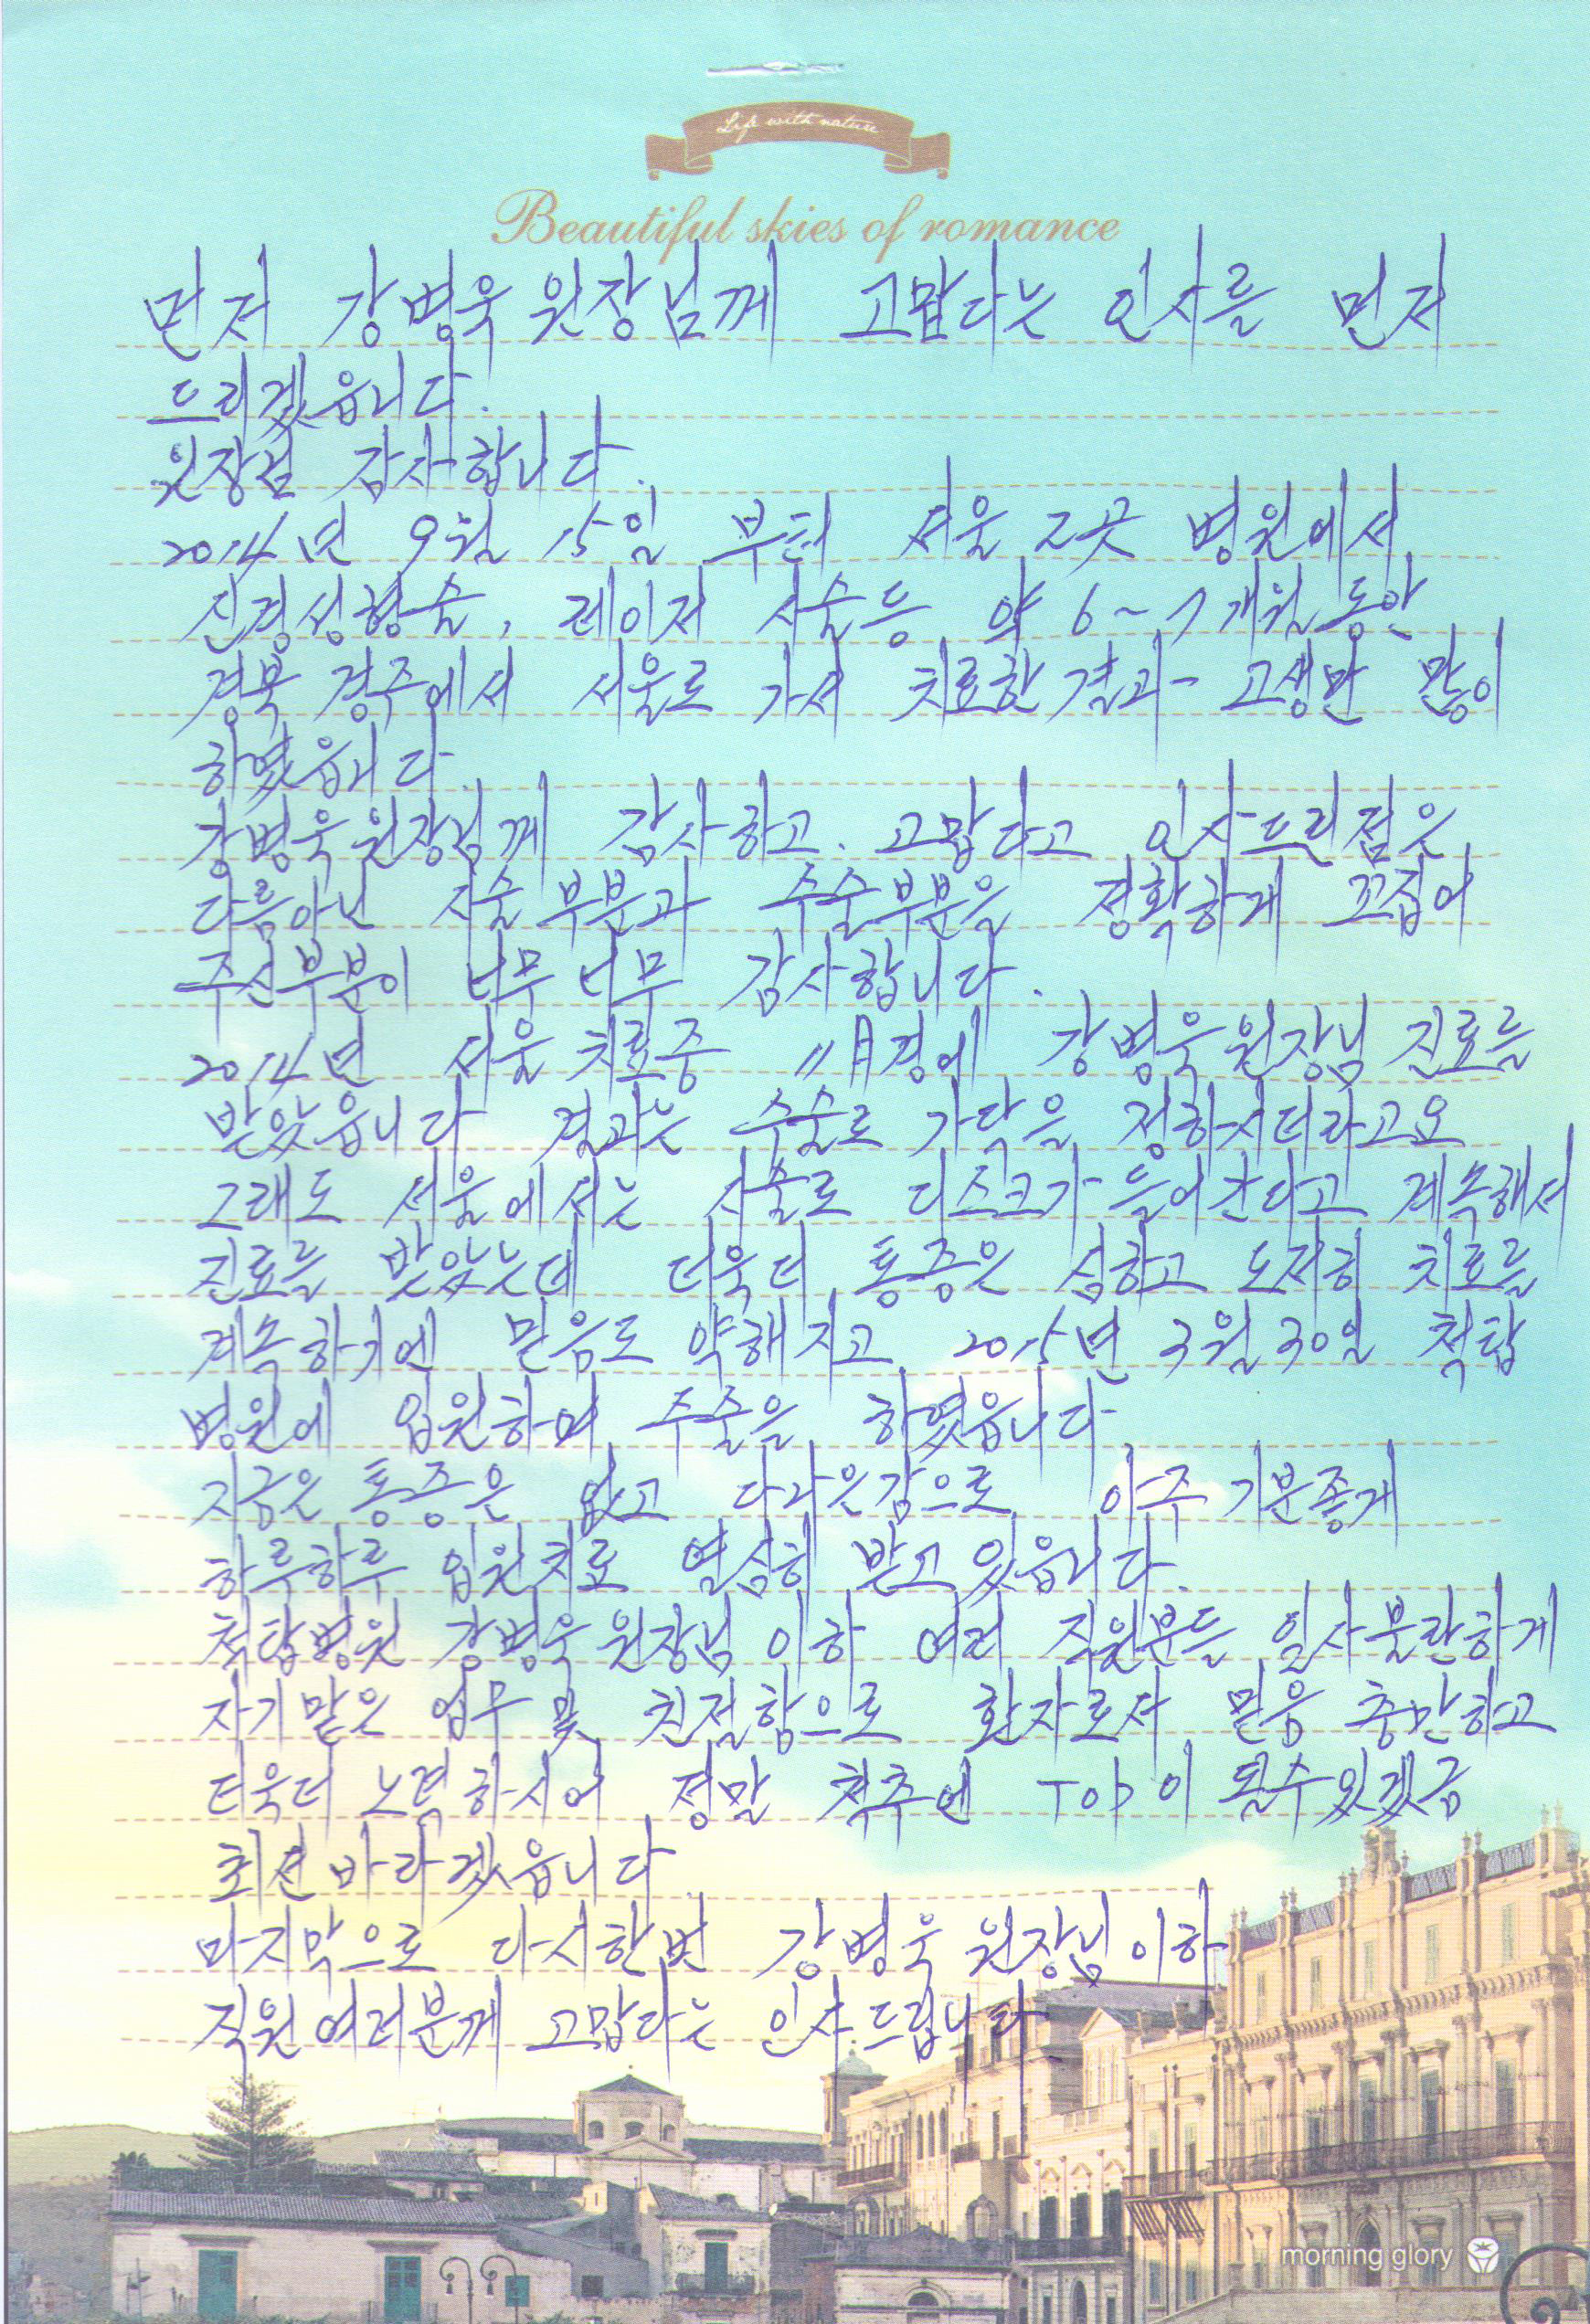 Life with nature
Beautiful skies of romance
먼저 강병욱 원장님께 고맙다는 인사를 먼저
드리겠읍니다.
원장님 감사합니다.
2014년 9월 15일 부터 서울 2곳 병원에서
신경성형술, 레이저 시술등 약 6~7개월 동안
경북 경주에서 서울로 가서 치료한 결과 고생만 많이
하였읍니다.
강병욱 원장님께 감사하고. 고맙다고 인사드린점은
다름아닌 시술 부분과 수술부분을 정확하게 꼬집어
주신부분이 너무 너무 감사합니다.
2014년 서울 치료중 11月경에 강병욱 원장님 진료를
받았읍니다 결과는 수술로 가닥을 정하시더라고요
그래도 서울에서는 시술로 디스크가 들어간다고 계속해서
진료를 받았는데 더욱더 통증은 심하고 도저히 치료를
계속하기엔 믿음도 약해지고 2015년 3월 30일 척탑
병원에 입원하며 수술을 하였읍니다.
지금은 통증은 없고 다나은감으로 아주 기분좋게
하루하루 입원치료 열심히 받고 있읍니다.
척탑병원 강병욱 원장님 이하 여러 직원분들 일사불란하게
자기맡은 업무 및 친절함으로 환자로서 믿음 충만하고
더욱더 노력하시어 정말 척추엔 Top이 될수있겠금
최선 바라겠읍니다.
마지막으로 다시한번 강병욱 원장님 이하
직원 여러분께 고맙다는 인사 드립니다
morning glory